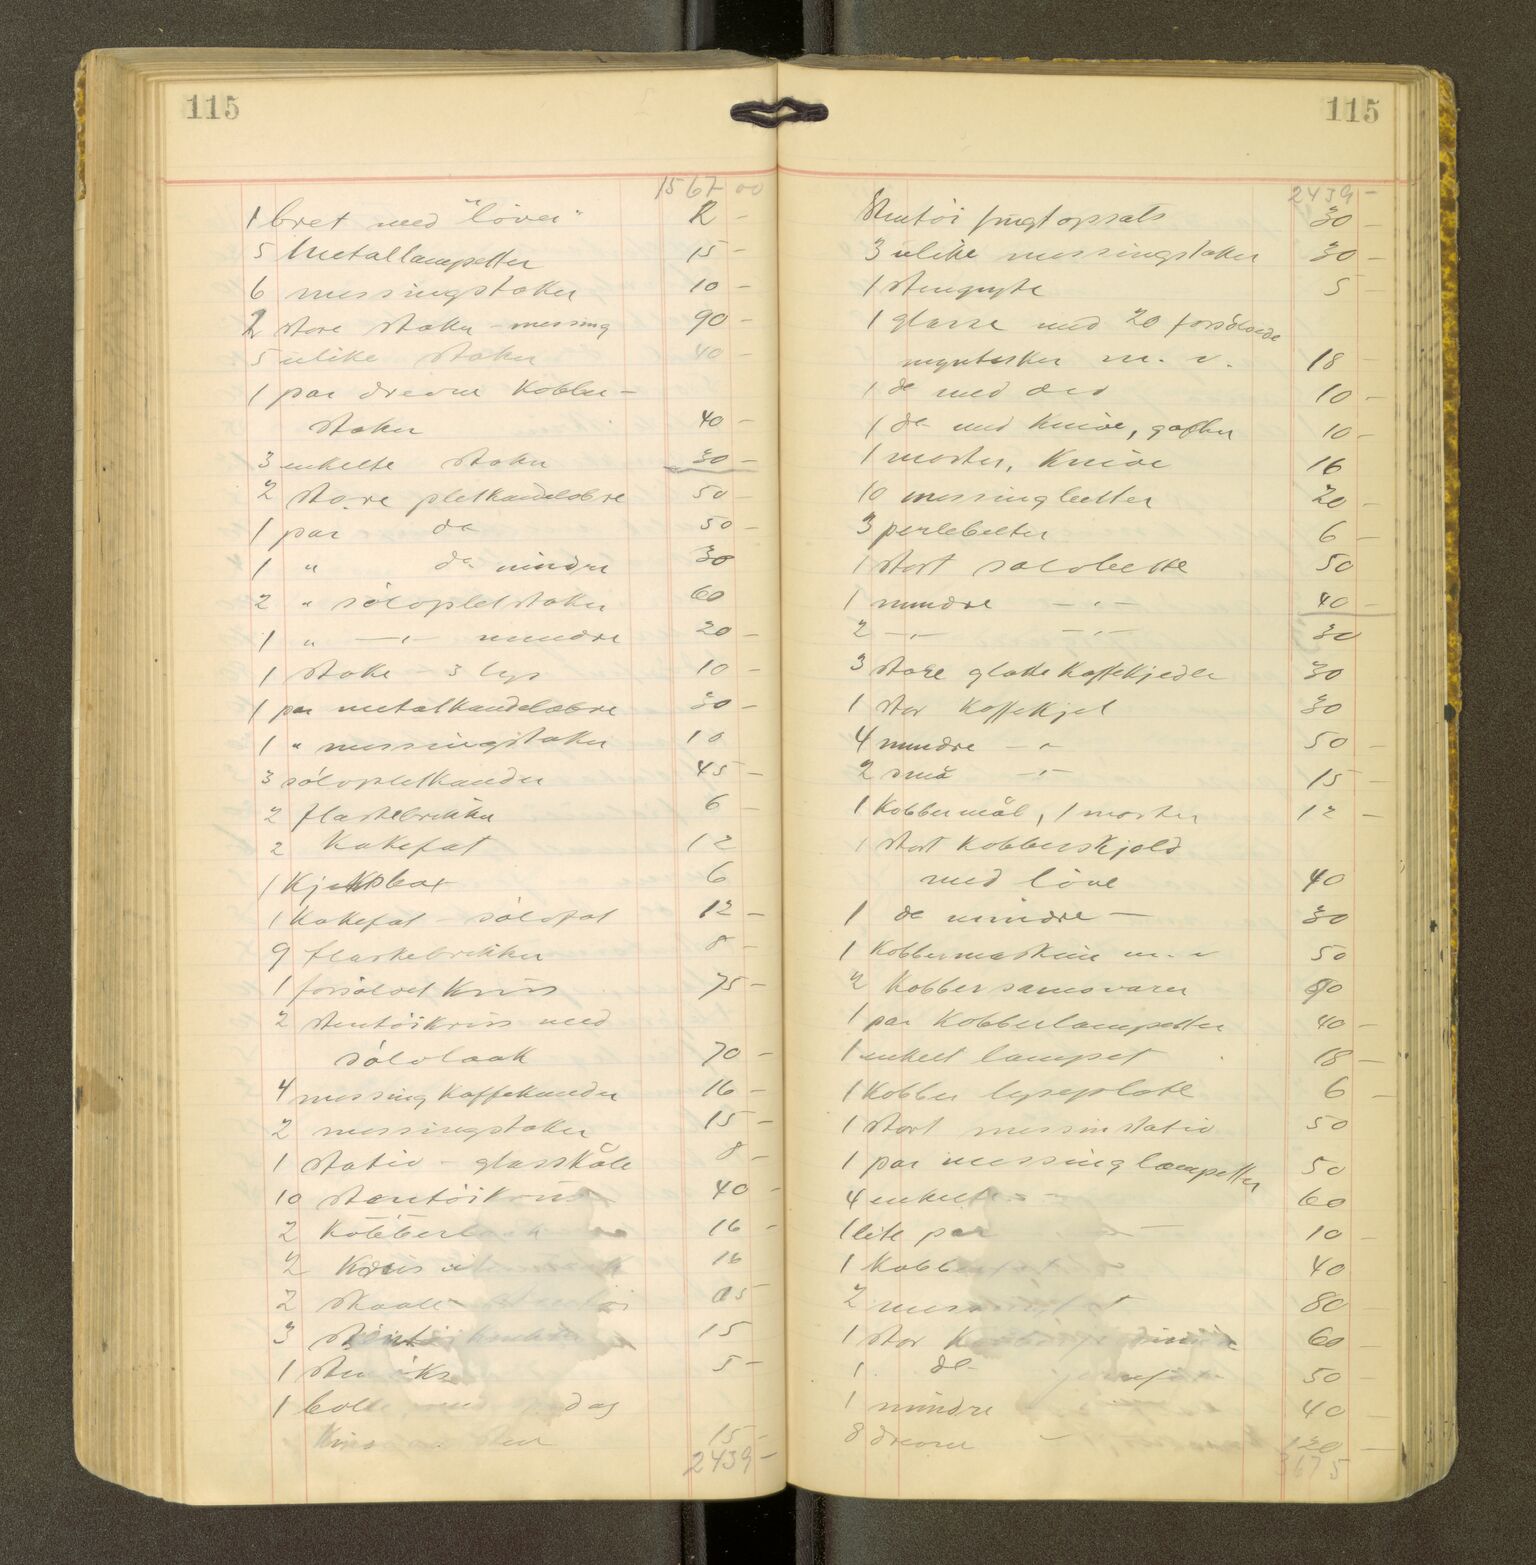 115
1567 00
1 bret med "löver" 12 -
5 Metallampetter 15 -
6 messingstaker 10 -
2 store staker - messing 90 -
5 ulike staker 40 -
1 par drevne Kobber-
staker 40 -
3 enkelte staker 30 -
2 store pletkandelabre 50 -
1 par do 50 -
1 " do mindre 30
2 " sölvpletstaker 60
1 " -"- mindre 20 -
1 stake - 3 lys 10 -
1 par metalkandelabre 30 -
1 " messingstaker 10
3 sölvpletkander 45 -
2 flaskebrikker 6 -
2 Kakefat 12
1 Kjeksbox 6
1 Kakefat - sölvfat 12 -
9 flaskebrikker 8 -
1 forsölvet Krus 75 -
2 stentöikrus med
sölvlaak 70 -
4 messing kaffekander 16 -
2 messingstaker 15 -
1 stativ - glasskåle 8 -
10 stentöikrus 40 -
2 Kobber 16 -
2 Krus 16
2 skaale 15
3 15
1 5 -
1 bolle med
15 -
2439 -
115
2439 -
Stentöi frugtopsats 30 -
3 ulike messingstaker 30 -
1 stengryte 5 -
1 glasse med 20 forsölvede
m. v. 18 -
1 do med do 10 -
1 do med Knive, gafler 10 -
1 morter, Knive 16
10 messingbelter 20 -
3 perlebelter 6 -
1 stort sölvbelte 50
1 mindre -"- 40 -
2 -"- -"- 30
3 store glatte Kaffekjedler 30
1 stor Kaffekjel 30
4 mindre -"- 50 -
2 små -"- 15 -
1 Kobbermål, 1 morter 12 -
1 stort Kobberskjold
med löve 40
1 do mindre - 30
1 Kobbermaskine m. v 50
2 Kobber samovarer 80
1 par Kobberlampetter 40 -
1 enkelt lampet 18 -
1 Kobber lyseplate 6 -
1 stort messin stativ 50
1 par messinglampetter 50
4 enkelte - 60
1 lite par - 10 -
1 40
2 80
1 stor 60 -
1 do 50 -
1 mindre 40 -
8 drevne - 120 -
3675